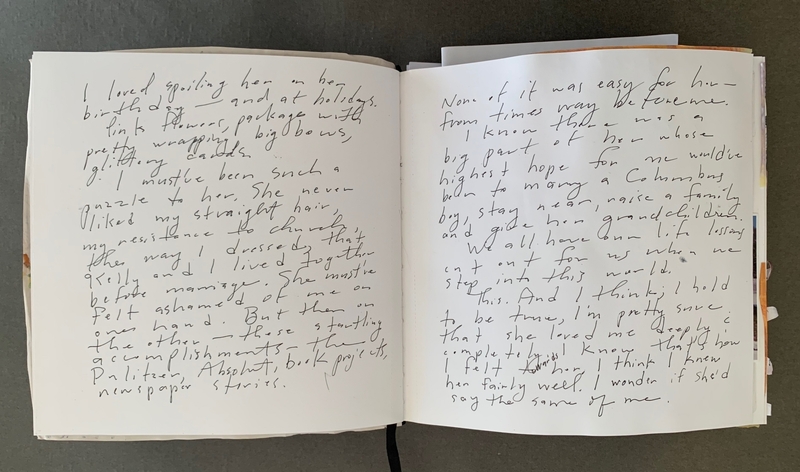 I loved spoiling her on her
birthday — and at holidays.
Pink flowers, package with
pretty wrapping, big bows,
glittery cards.
I must've been such a
puzzle to her. She never
liked my straight hair,
my resistance to church,
the way I dressed, that
Kelly and I lived together
before marriage. She must've
felt ashamed of me on
one hand. But then on
the other — those startling
accomplishments — the
Pulitzer, Absolut, book projects,
newspaper stories.
None of it was easy for her —
from times way before me.
I know there was a
big part of her whose
highest hope for me would've
been to marry a Columbus
boy, stay near, raise a family
and give her grandchildren.
We all have our life lessons
cut out for us when we
step into this world.
This. And I think, I hold
to be true, I'm pretty sure
that she loved me deeply &
completely. I know that's how
I felt towards her. I think I knew
her fairly well. I wonder if she'd
say the same of me.